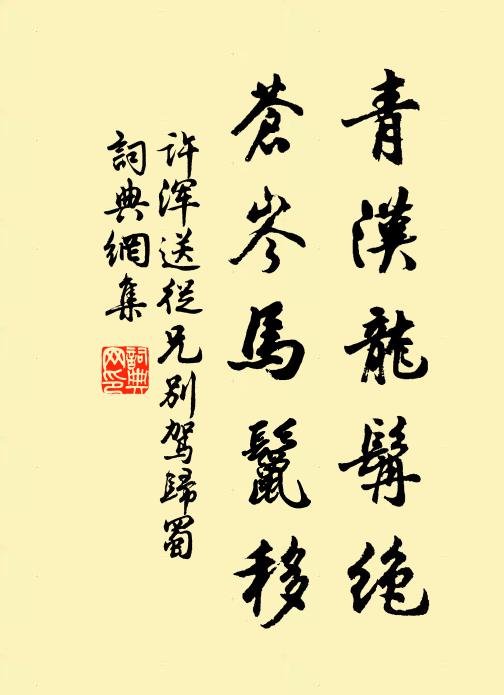 青漢龍髯絶
蒼岑馬鬣移
许浑送從兄別駕歸蜀
詞典網集
詞典網印